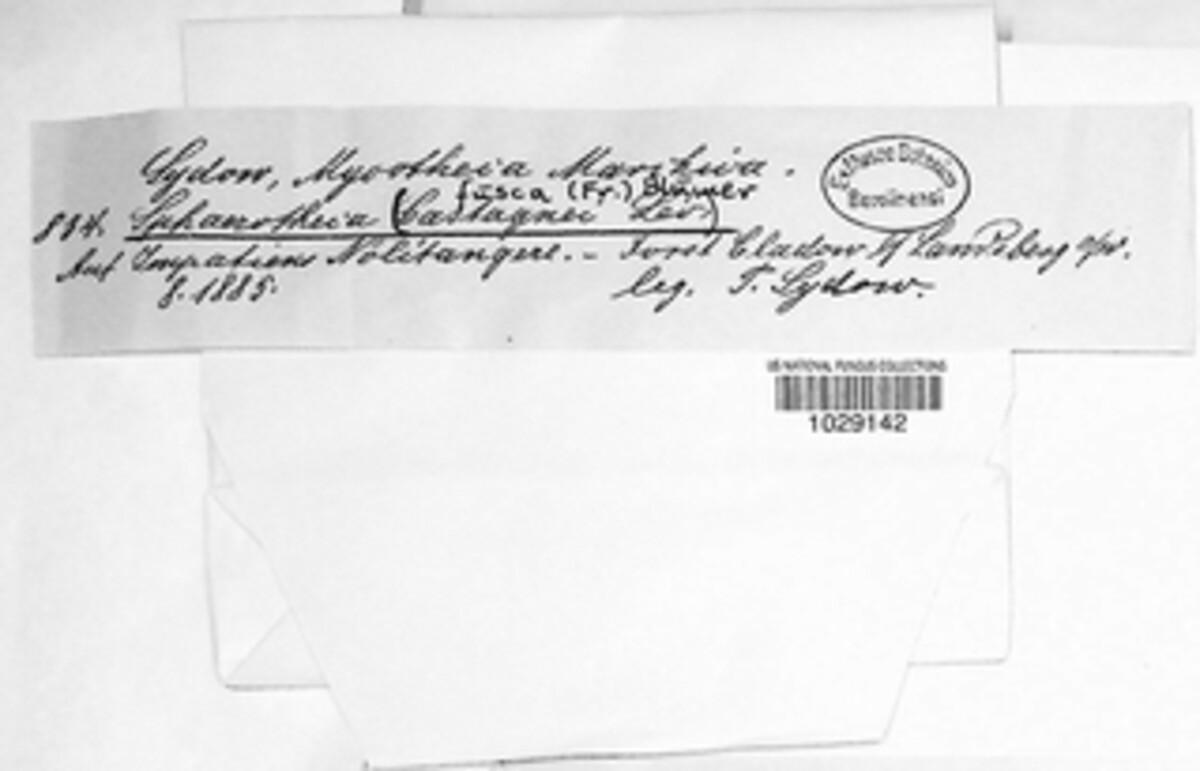 Sydow, Mycotheca Marchica.
fusca (Fr.) Blumer
884. Sphaerotheca (Castagnei Lév.)
Auf Impatiens Nolitangere. – Forst Cladow b/ Landsberg a/W.
8. 1885. leg. P. Sydow.
Ex Museo Botanico
Berolinensi
US NATIONAL FUNGUS COLLECTIONS
1029142